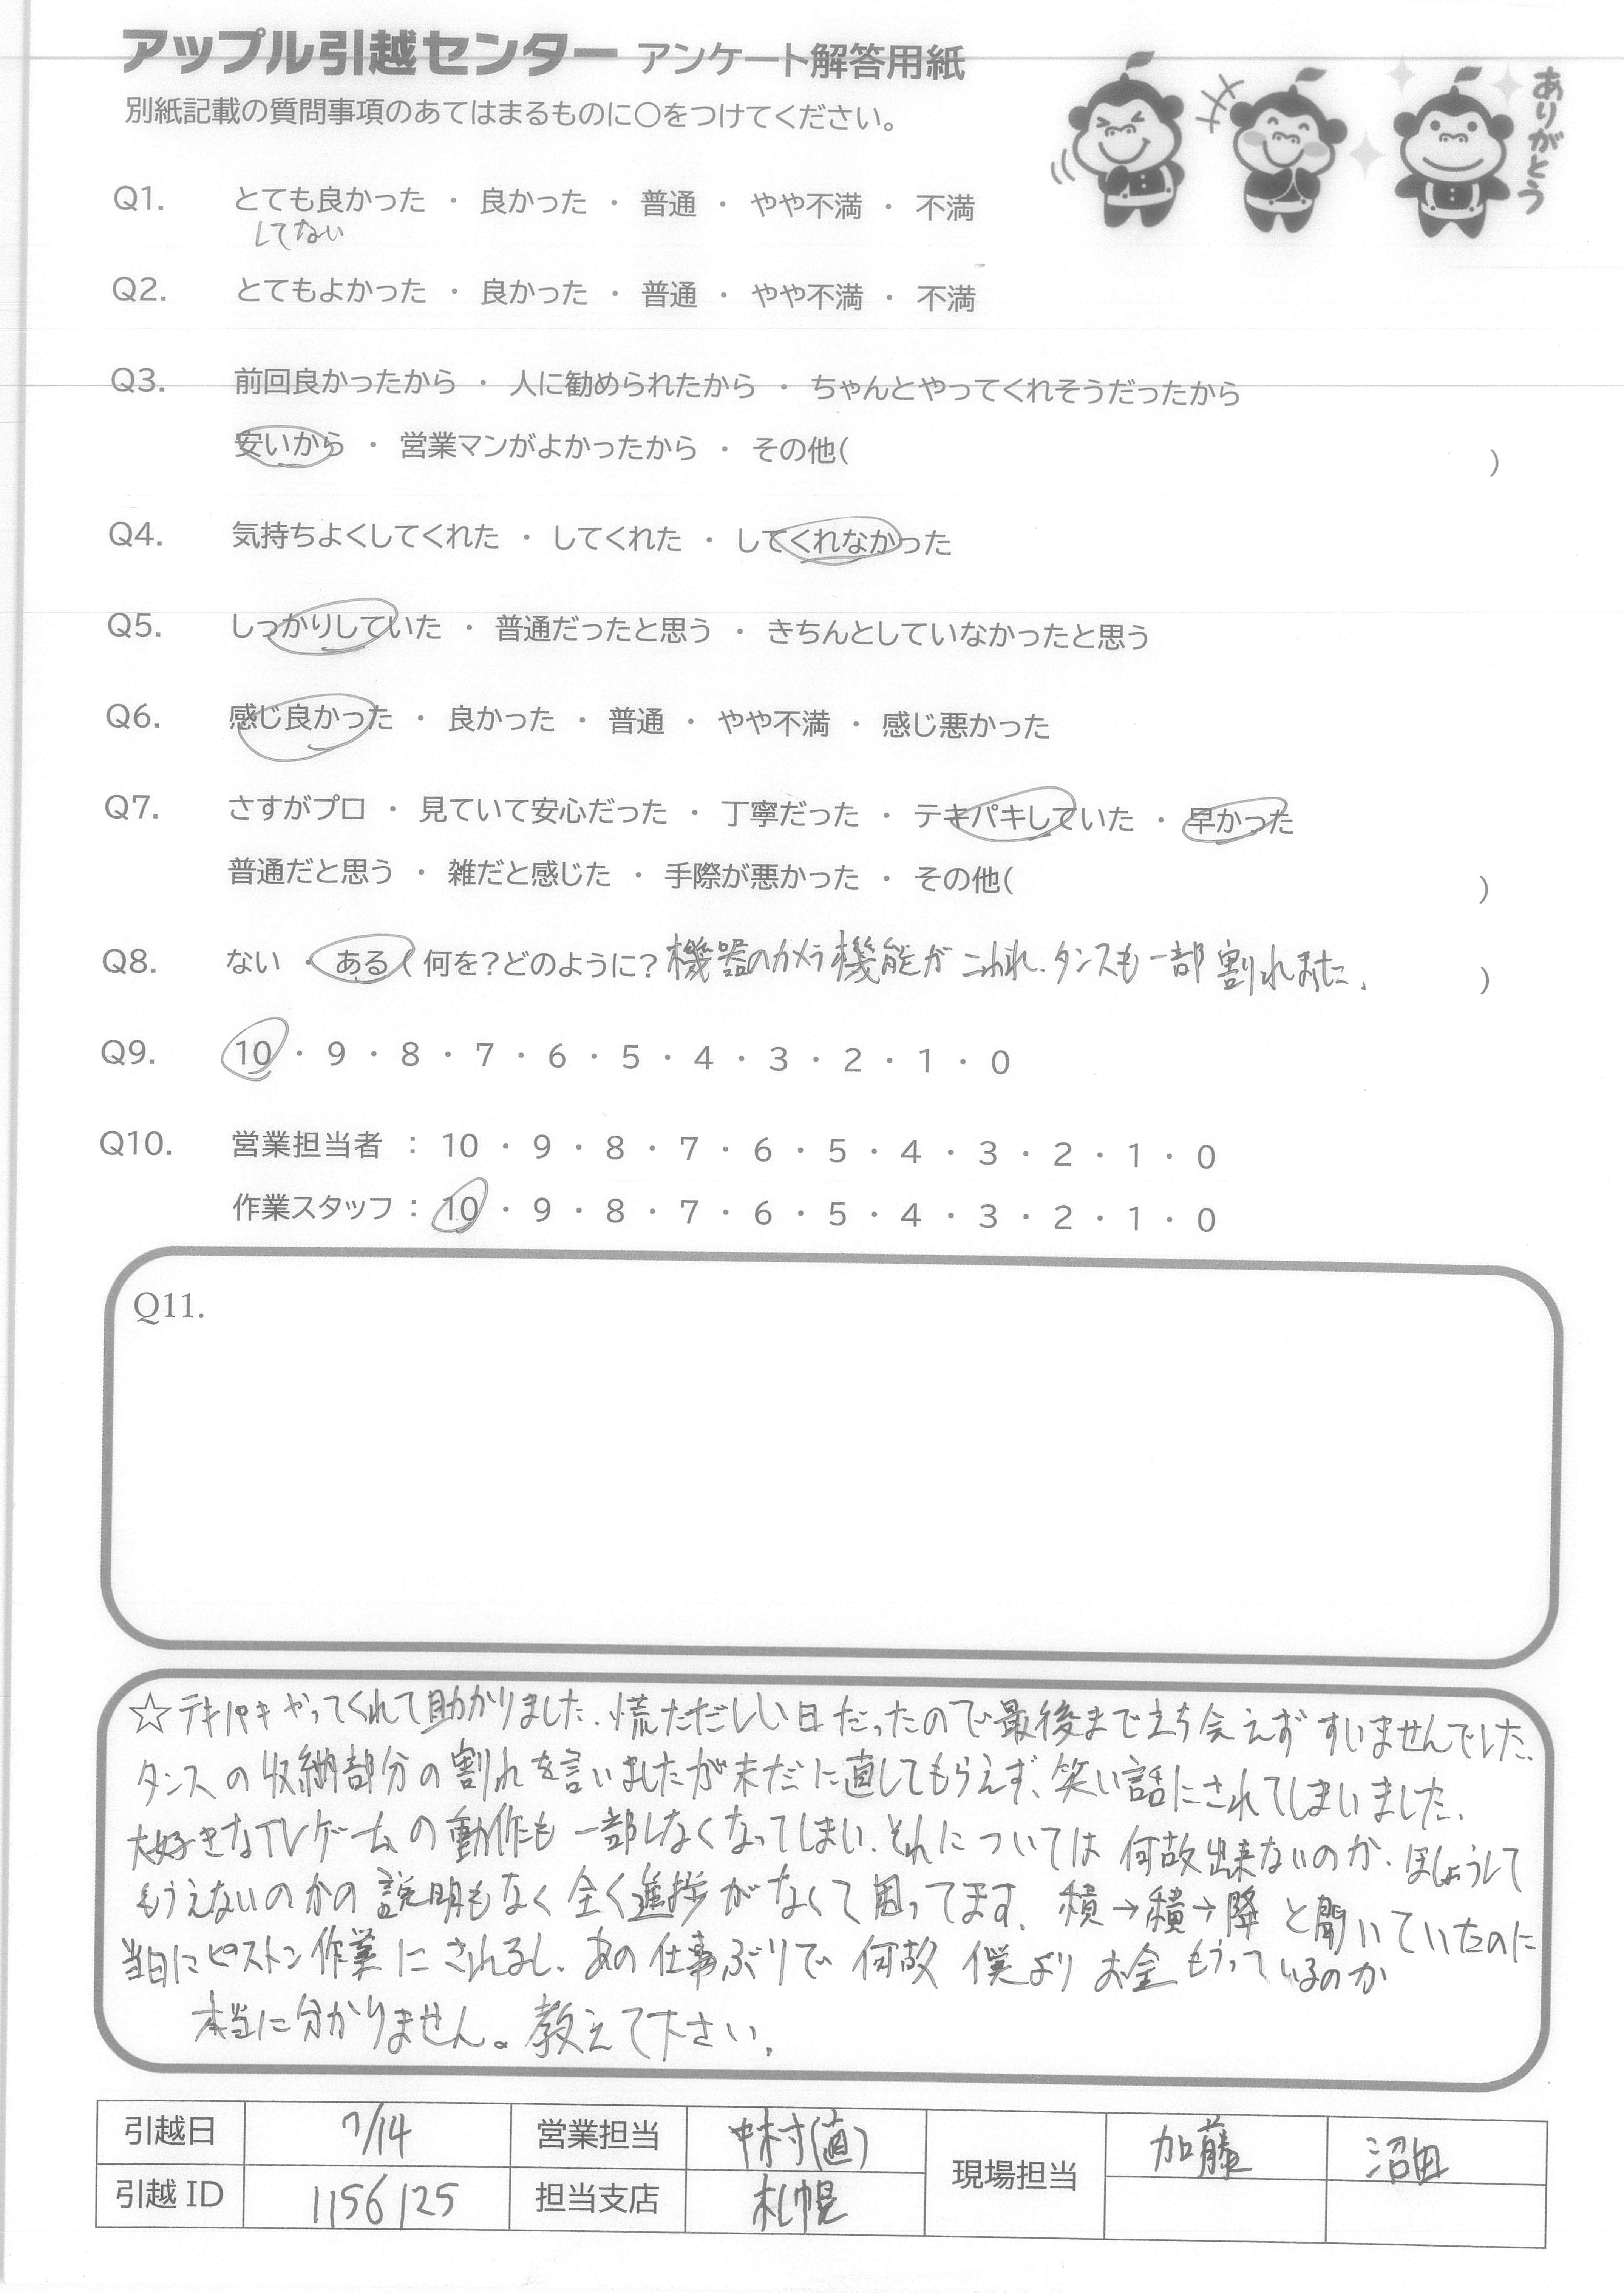 アップル引越センター アンケート解答用紙
別紙記載の質問事項のあてはまるものに○をつけてください。
ありがとう
Q1. とても良かった ・ 良かった ・ 普通 ・ やや不満 ・ 不満
してない
Q2. とてもよかった ・ 良かった ・ 普通 ・ やや不満 ・ 不満
Q3. 前回良かったから ・ 人に勧められたから ・ ちゃんとやってくれそうだったから
安いから ・ 営業マンがよかったから ・ その他( )
Q4. 気持ちよくしてくれた ・ してくれた ・ してくれなかった
Q5. しっかりしていた ・ 普通だったと思う ・ きちんとしていなかったと思う
Q6. 感じ良かった ・ 良かった ・ 普通 ・ やや不満 ・ 感じ悪かった
Q7. さすがプロ ・ 見ていて安心だった ・ 丁寧だった ・ テキパキしていた ・ 早かった
普通だと思う ・ 雑だと感じた ・ 手際が悪かった ・ その他( )
Q8. ない ・ ある ( 何を?どのように? 機器のカメラ機能がこわれ、タンスも一部割れました。 )
Q9. 10 ・ 9 ・ 8 ・ 7 ・ 6 ・ 5 ・ 4 ・ 3 ・ 2 ・ 1 ・ 0
Q10. 営業担当者 : 10 ・ 9 ・ 8 ・ 7 ・ 6 ・ 5 ・ 4 ・ 3 ・ 2 ・ 1 ・ 0
作業スタッフ : 10 ・ 9 ・ 8 ・ 7 ・ 6 ・ 5 ・ 4 ・ 3 ・ 2 ・ 1 ・ 0
Q11.
☆テキパキやってくれて助かりました。慌ただしい日だったので最後まで立ち会えずすいませんでした。
タンスの収納部分の割れを言いましたが未だに直してもらえず、笑い話にされてしまいました。
大好きなTVゲームの動作も一部しなくなってしまい、それについては何故出来ないのか、ほしょうして
もらえないのかの説明もなく全く進捗がなくて困ってます。積→積→降と聞いていたのに
当日にピストン作業にされるし、あの仕事ぶりで何故僕よりお金もらっているのか
本当に分かりません。教えて下さい。
引越日 7/14 営業担当 中村(直) 現場担当 加藤 沼田
引越ID 1156125 担当支店 札幌